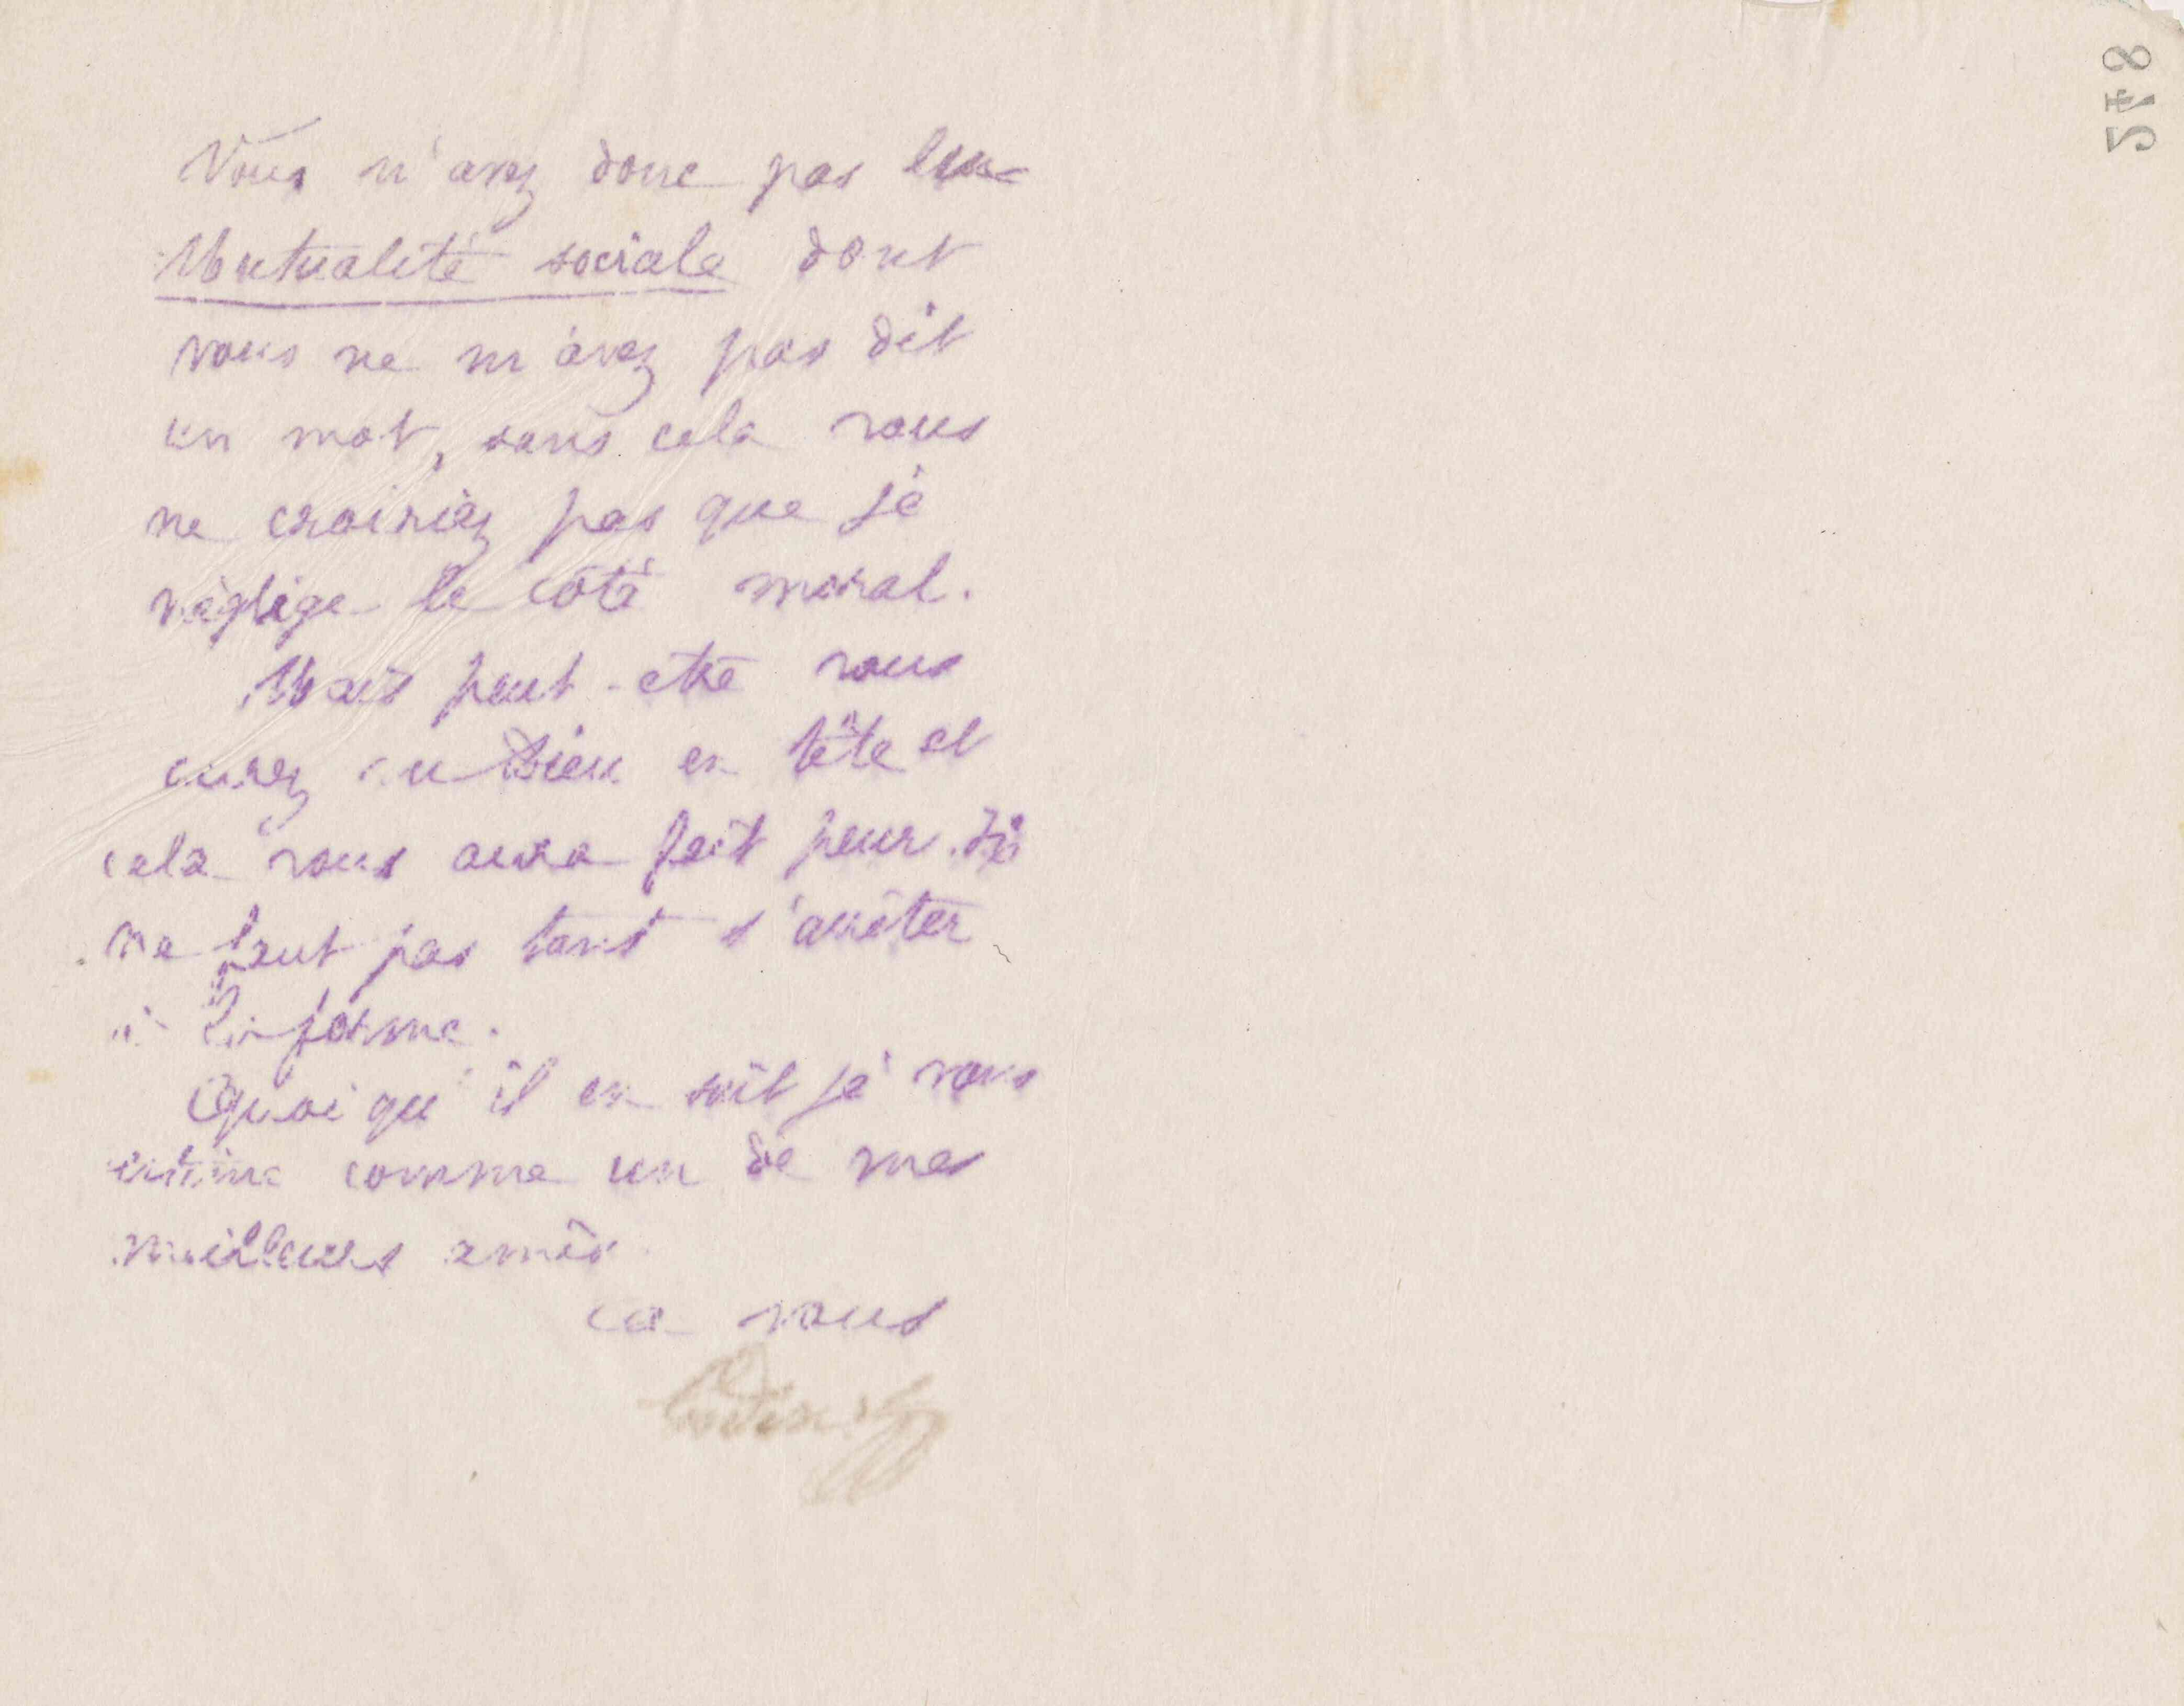 Vous n'avez donc pas lu
Mutualité sociale dont
vous ne m'avez pas dit
un mot, sans cela vous
ne croiriez pas que je
néglige le côté moral.
Mais peut-être vous
aurez vu Dieu en tête et
cela vous aura fait peur. Il
ne faut pas tant s'arrêter
à la forme.
Quoi qu'il en soit je vous
estime comme un de mes
meilleurs amis.
à vous
578